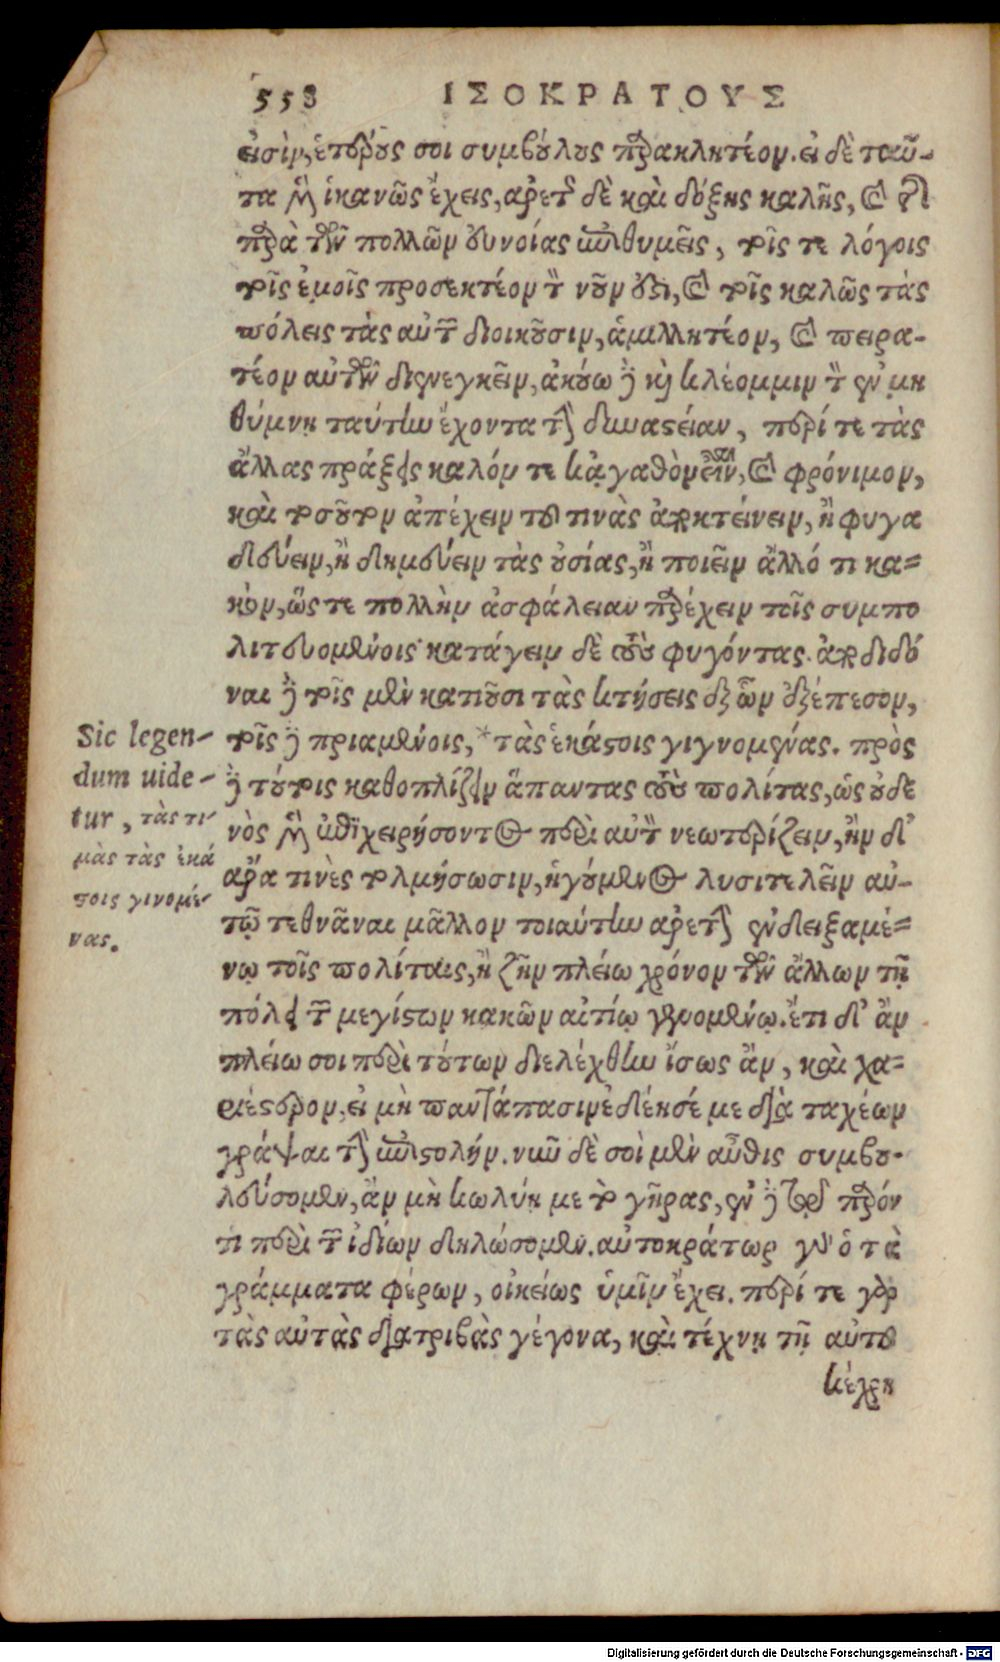 558 ΙΣΟΚΡΑΤΟΥΣ
εἰσὶν, ἑτέρους σοι συμβούλους παρακλητέον. εἰ δὲ ταῦ-
τα μὲν ἱκανῶς ἔχεις, ἀρετῆς δὲ καὶ δόξης καλῆς, καὶ τῆς
παρὰ τῶν πολλῶν εὐνοίας ἐπιθυμεῖς, τοῖς τε λόγοις
τοῖς ἐμοῖς προσεκτέον τὸν νοῦν ἐστι, καὶ τοῖς καλῶς τὰς
πόλεις τὰς αὑτῶν διοικοῦσιν, ἁμιλλητέον, καὶ πειρα-
τέον αὐτῶν διενεγκεῖν, ἀκούω δὲ καὶ κλέομμιν τὸν ἐν μη
θύμνῃ ταύτην ἔχοντα τὴν δυναστείαν, περί τε τὰς
ἄλλας πράξεις καλόν τε κἀγαθὸν εἶναι, καὶ φρόνιμον,
καὶ τοσοῦτον ἀπέχειν τοῦ τινὰς ἀποκτείνειν, ἢ φυγα
δεύειν, ἢ δημεύειν τὰς οὐσίας, ἢ ποιεῖν ἄλλό τι κα=
κὸν, ὥς τε πολλὴν ἀσφάλειαν παρέχειν τοῖς συμπο
λιτευομένοις· κατάγειν δὲ τοὺς φυγόντας. ἀποδιδό
ναι δὲ τοῖς μὲν κατιοῦσι τὰς κτήσεις ἐξ ὧν ἐξέπεσον,
τοῖς δὲ πριαμένοις, * τὰς ἑκάστοις γιγνομένας. πρὸς
δὲ τούτοις καθοπλίζειν ἅπαντας τοὺς πολίτας, ὡς οὐδε
νὸς μὲν ἐπιχειρήσοντος περὶ αὐτὸν νεωτερίζειν, ἢν δ᾽
ἄρα τινὲς τολμήσωσιν, ἡγούμενος λυσιτελεῖν αὑ-
τῷ τεθνᾶναι μᾶλλον τοιαύτην ἀρετὴν ἐνδειξαμέ=
νῳ τοῖς πολίταις, ἢ ζῇν πλείω χρόνον τῶν ἄλλων τῇ
πόλει τῶν μεγίστων κακῶν αἰτίῳ γενομένῳ. ἔτι δ᾽ ἂν
πλείω σοι περὶ τούτων διελέχθην ἴσως ἂν, καὶ χα=
ριέστερον, εἰ μὴ παντάπασιν ἐδέησέ με διὰ ταχέων
γράψαι τὴν ἐπιστολήν. νῦν δὲ σοὶ μὲν αὖθις συμβου-
λεύσομεν, ἂν μὴ κωλύῃ με τὸ γῆρας, ἐν δὲ τῷ παρόν
τι περὶ τῶν ἰδίων δηλώσομεν. αὐτοκράτωρ γὰρ ὁ τὰ
γράμματα φέρων, οἰκείως ὑμῖν ἔχει. περί τε γὰρ
τὰς αὐτὰς διατριβὰς γέγονα, καὶ τέχνῃ τῇ αὐτοῦ
κέχρη
Sic legen-
dum uide-
tur, τὰς τι-
μὰς τὰς ἑκά
στοις γινομέ-
νας.
Digitalisierung gefördert durch die Deutsche Forschungsgemeinschaft - DFG